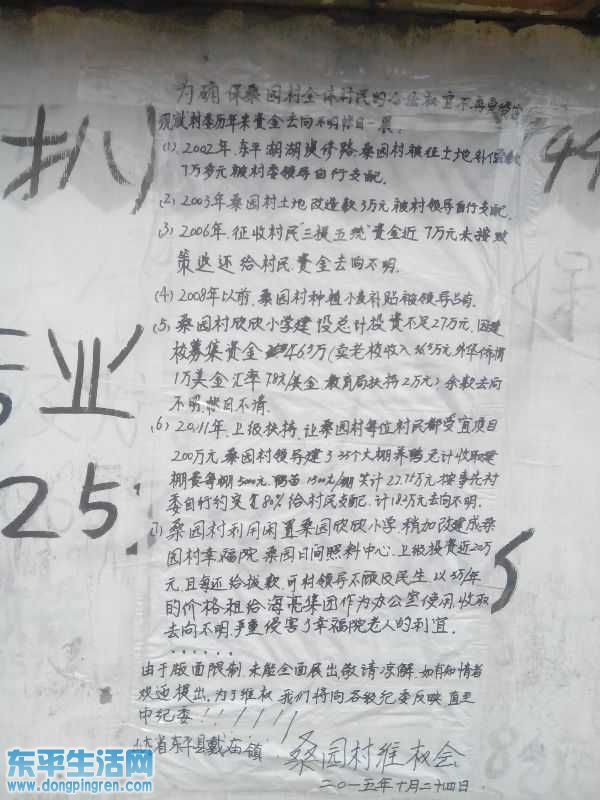 为确保桑园村全体村民的合法权宜不再受
现就村委历年来资金去向不明帐目一展:
(1) 2002年.东平湖湖堤修路.桑园村被征土地.补偿款
7万多元被村委领导自行支配.
(2) 2003年桑园村土地改造款3万元被村领导自行支配.
(3) 2006年.征收村民"三提五统"资金近7万元未按政
策返还给村民.资金去向不明.
(4) 2008年以前.桑园村种植小麦补贴被领导占有.
(5) 桑园村欣欣小学建设总计投资不足27万元.因建
校募集资金 46.3万(卖老校收入 万.外华侨捐
1万美金 汇率7.8元/美金.教育局扶持2万元)余款去向
不明.帐目不清.
(6) 2011年.上级扶持.让桑园村每位村民都受宜项目
200万元.桑园村领导建了35个大棚养鸭.
棚费每棚5000元.鸭苗1500元/棚 共计22.75万元.按事先村
委自行约定 80%给村民支配.计18.2万去向不明.
(7) 桑园村利用闲置桑园欣欣小学.稍加改建成桑
园村幸福院.桑园日间照料中心.上级投资近20万
元.且每还给拨款.可村领导不顾及民生.以5万/年
的价格.租给海亮集团作为办公室使用.收取
去向不明.严重侵害了幸福院老人的利宜.
......
由于版面限制.未能全面展出敬请凉解.如有知情者
欢迎提出.为了维权 我们将向各级纪委反映 直至
中纪委!!!!!!!
山东省东平县戴庙镇 桑园村维权会
二〇一五年十月二十四日.
扒
业
25
5
44
东平生活网
www.dongpingren.com